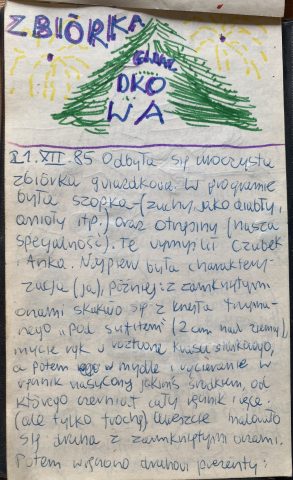 ZBIÓRKA
GWIAZ
DKO
WA
21.XII.85 Odbyła się uroczysta
zbiórka gwiazdkowa. W programie
była szopka - (zuchy jako diabły i
anioły itp.) oraz otrzęsiny (nasza
specjalność). Te wymyślił Czubek
i Anka. Najpierw była charaktery-
zacja (ja), później: z zamkniętymi
oczami skakało się z krzesła trzyma-
nego „pod sufitem" (2 cm nad ziemią),
mycie rąk w roztworze kwasu siarkowego,
a potem w mydle i wycieranie w
ręcznik nasycony jakimś środkiem, od
którego czerwienił cały ręcznik i ręce.
(ale tylko trochę) Wreszcie malowało
się druha z zamkniętymi oczami.
Potem wręczono druhowi prezenty: